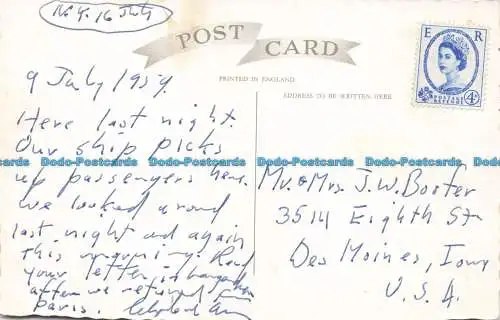 N.Y. 16 July
POST CARD
E R
POSTAGE REVENUE
4D
PRINTED IN ENGLAND
ADDRESS TO BE WRITTEN HERE
9 July 1959.
Here last night.
Our ship picks
up passengers here.
We looked around
last night and again
this morning. Read
your letter in
after we returned from
Paris.
Mr. & Mrs. J. W. Booter
3514 Eighth St
Des Moines, Iowa
U.S.A.
Dodo-Postcards Dodo-Postcards Dodo-Postcards Dodo-Postcards